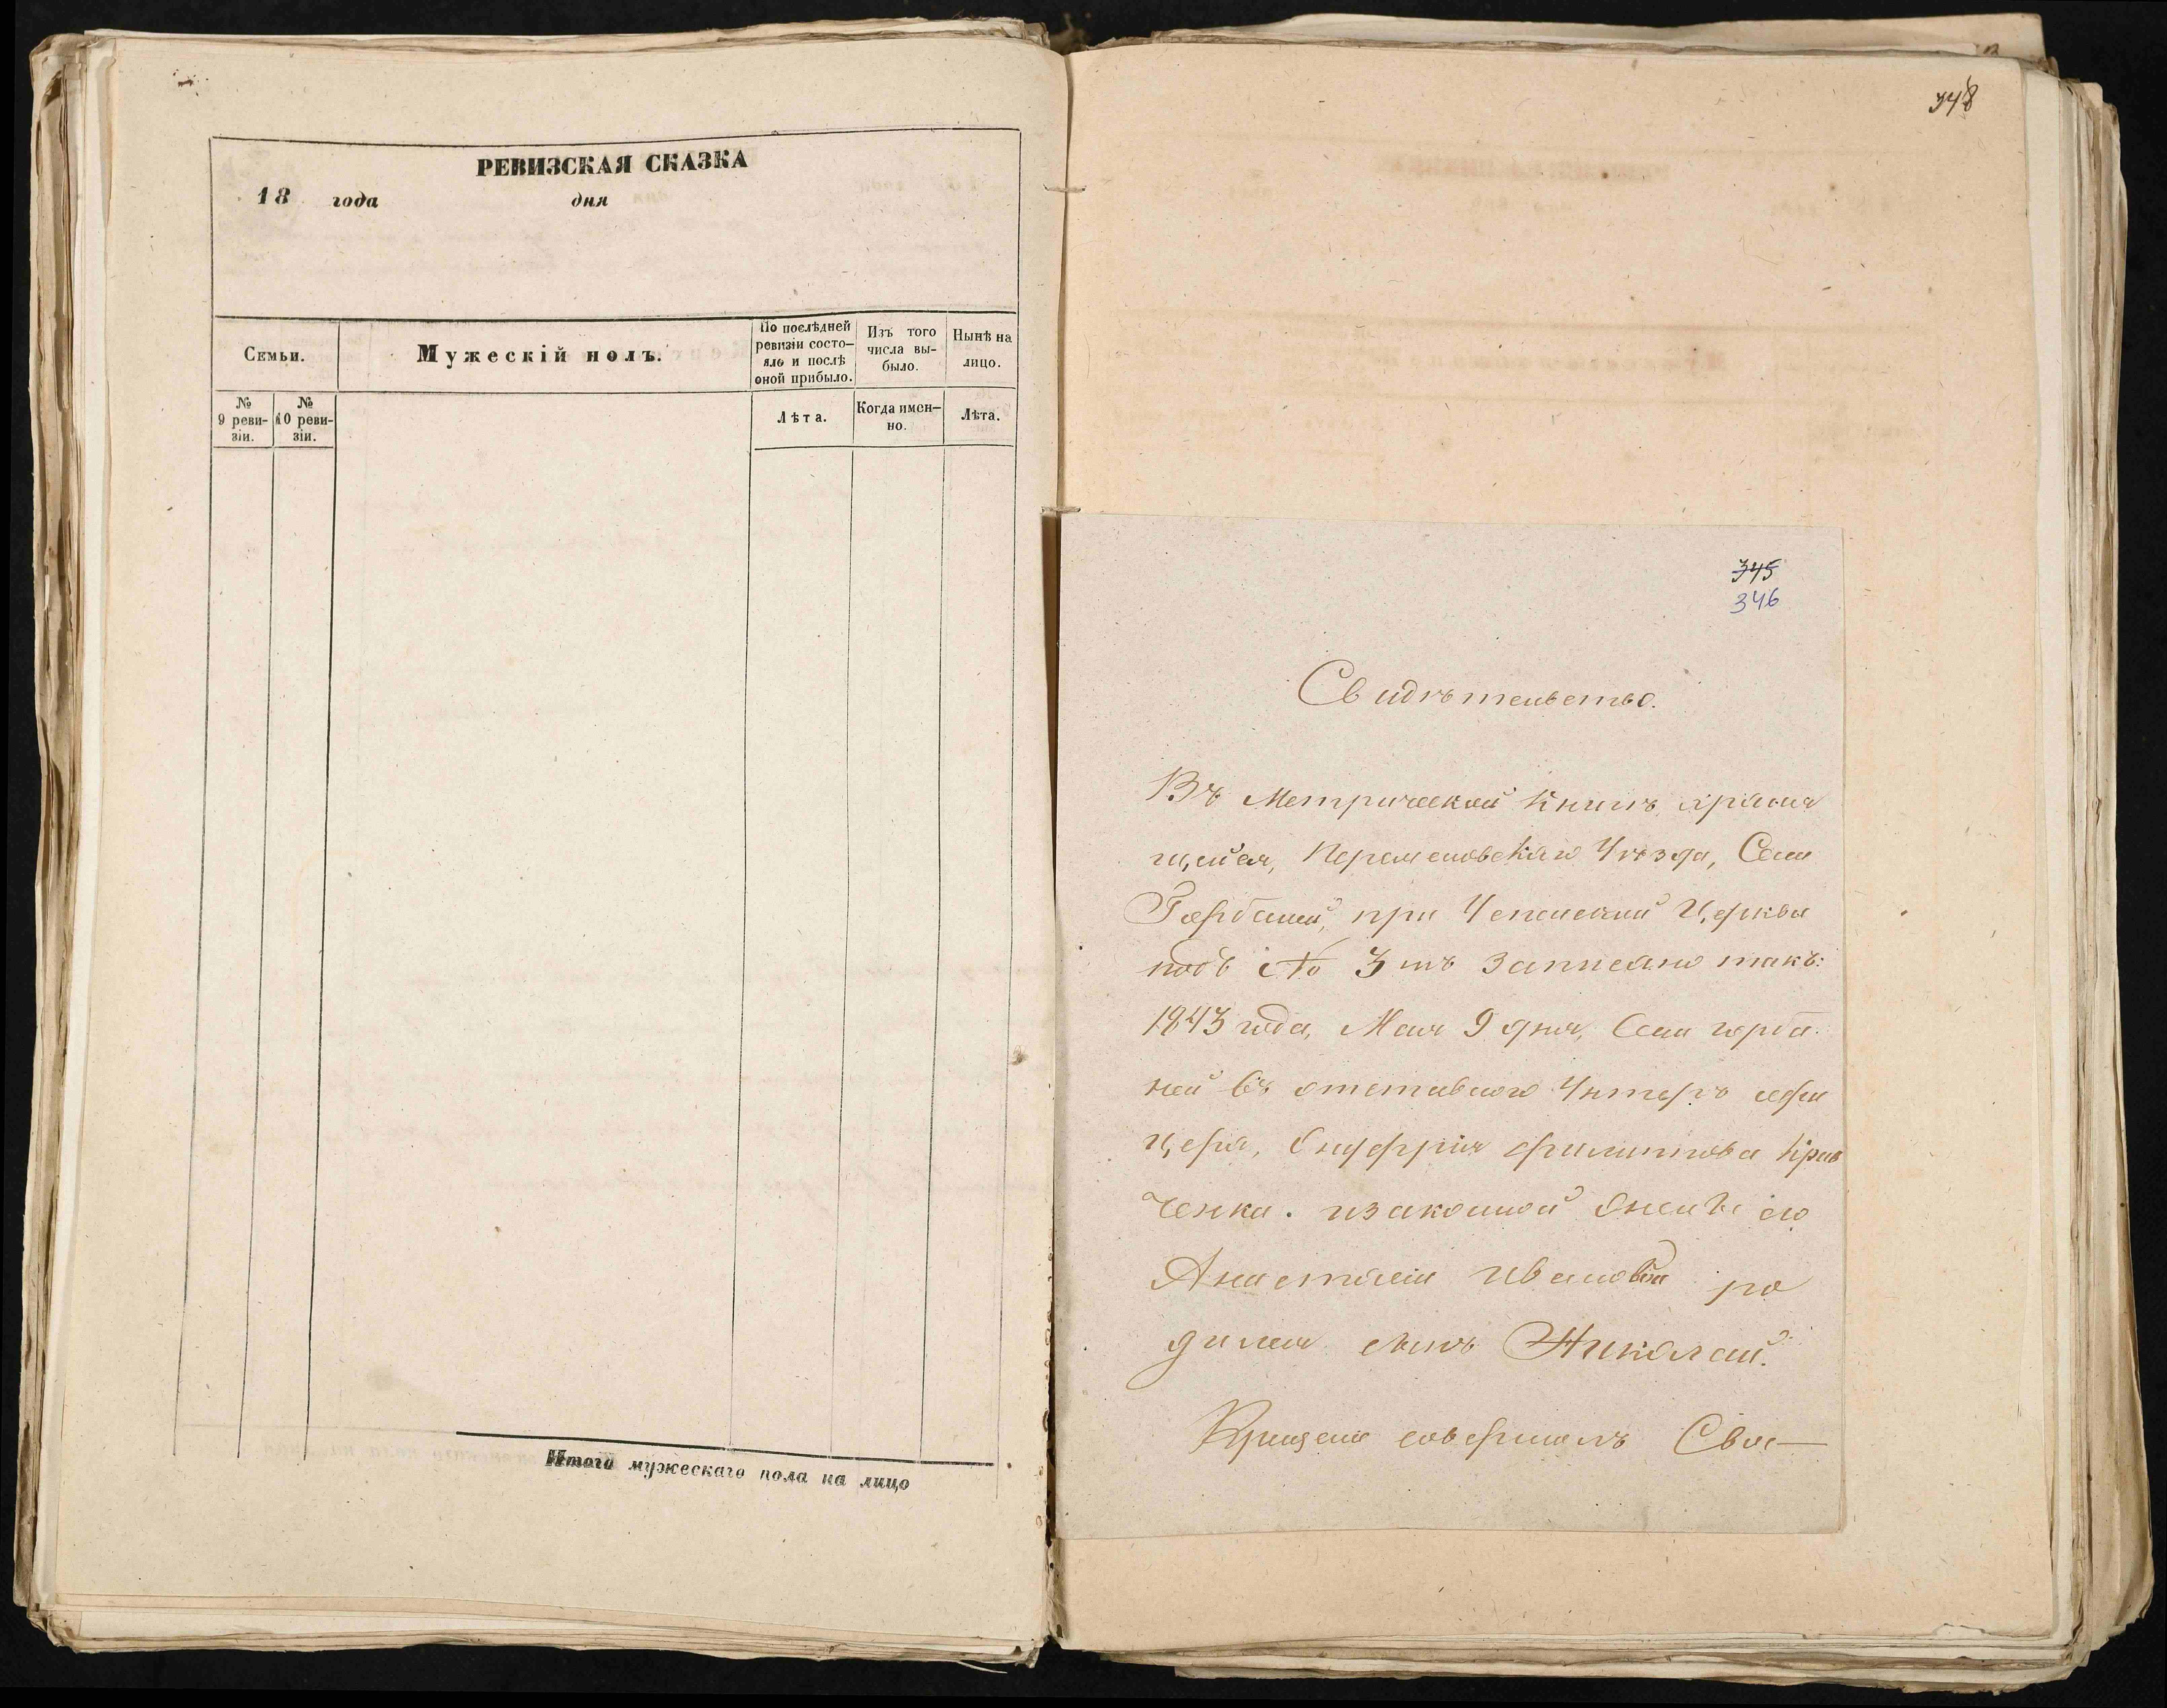 РЕВИЗСКАЯ СКАЗКА
18 года дня
Семьи.
Мужескій полъ.
По послѣдней
ревизіи состо-
яло и послѣ
оной прибыло.
Изъ того
числа вы-
было.
Нынѣ на
лицо.
№
9 реви-
зіи.
№
10 реви-
зіи.
Лѣта.
Когда имен-
но.
Лѣта.
Итого мужескаго пола на лицо
348
345
346
Свидѣтельство.
Въ Метрической Книгѣ храня
щейся, Уѣзда, Села
при Успенской Церкви
подъ № 3 мъ записано такъ:
1843 года, Мая 9 дня, Села горба
ней въ отставного Унтеръ офи
цера, Онуфрія Филиппова Крав
ченка. изаконной жены его
Анастасіи Ивановой ро
дился сынъ Николай.
Крещеніе совершалъ Свя—